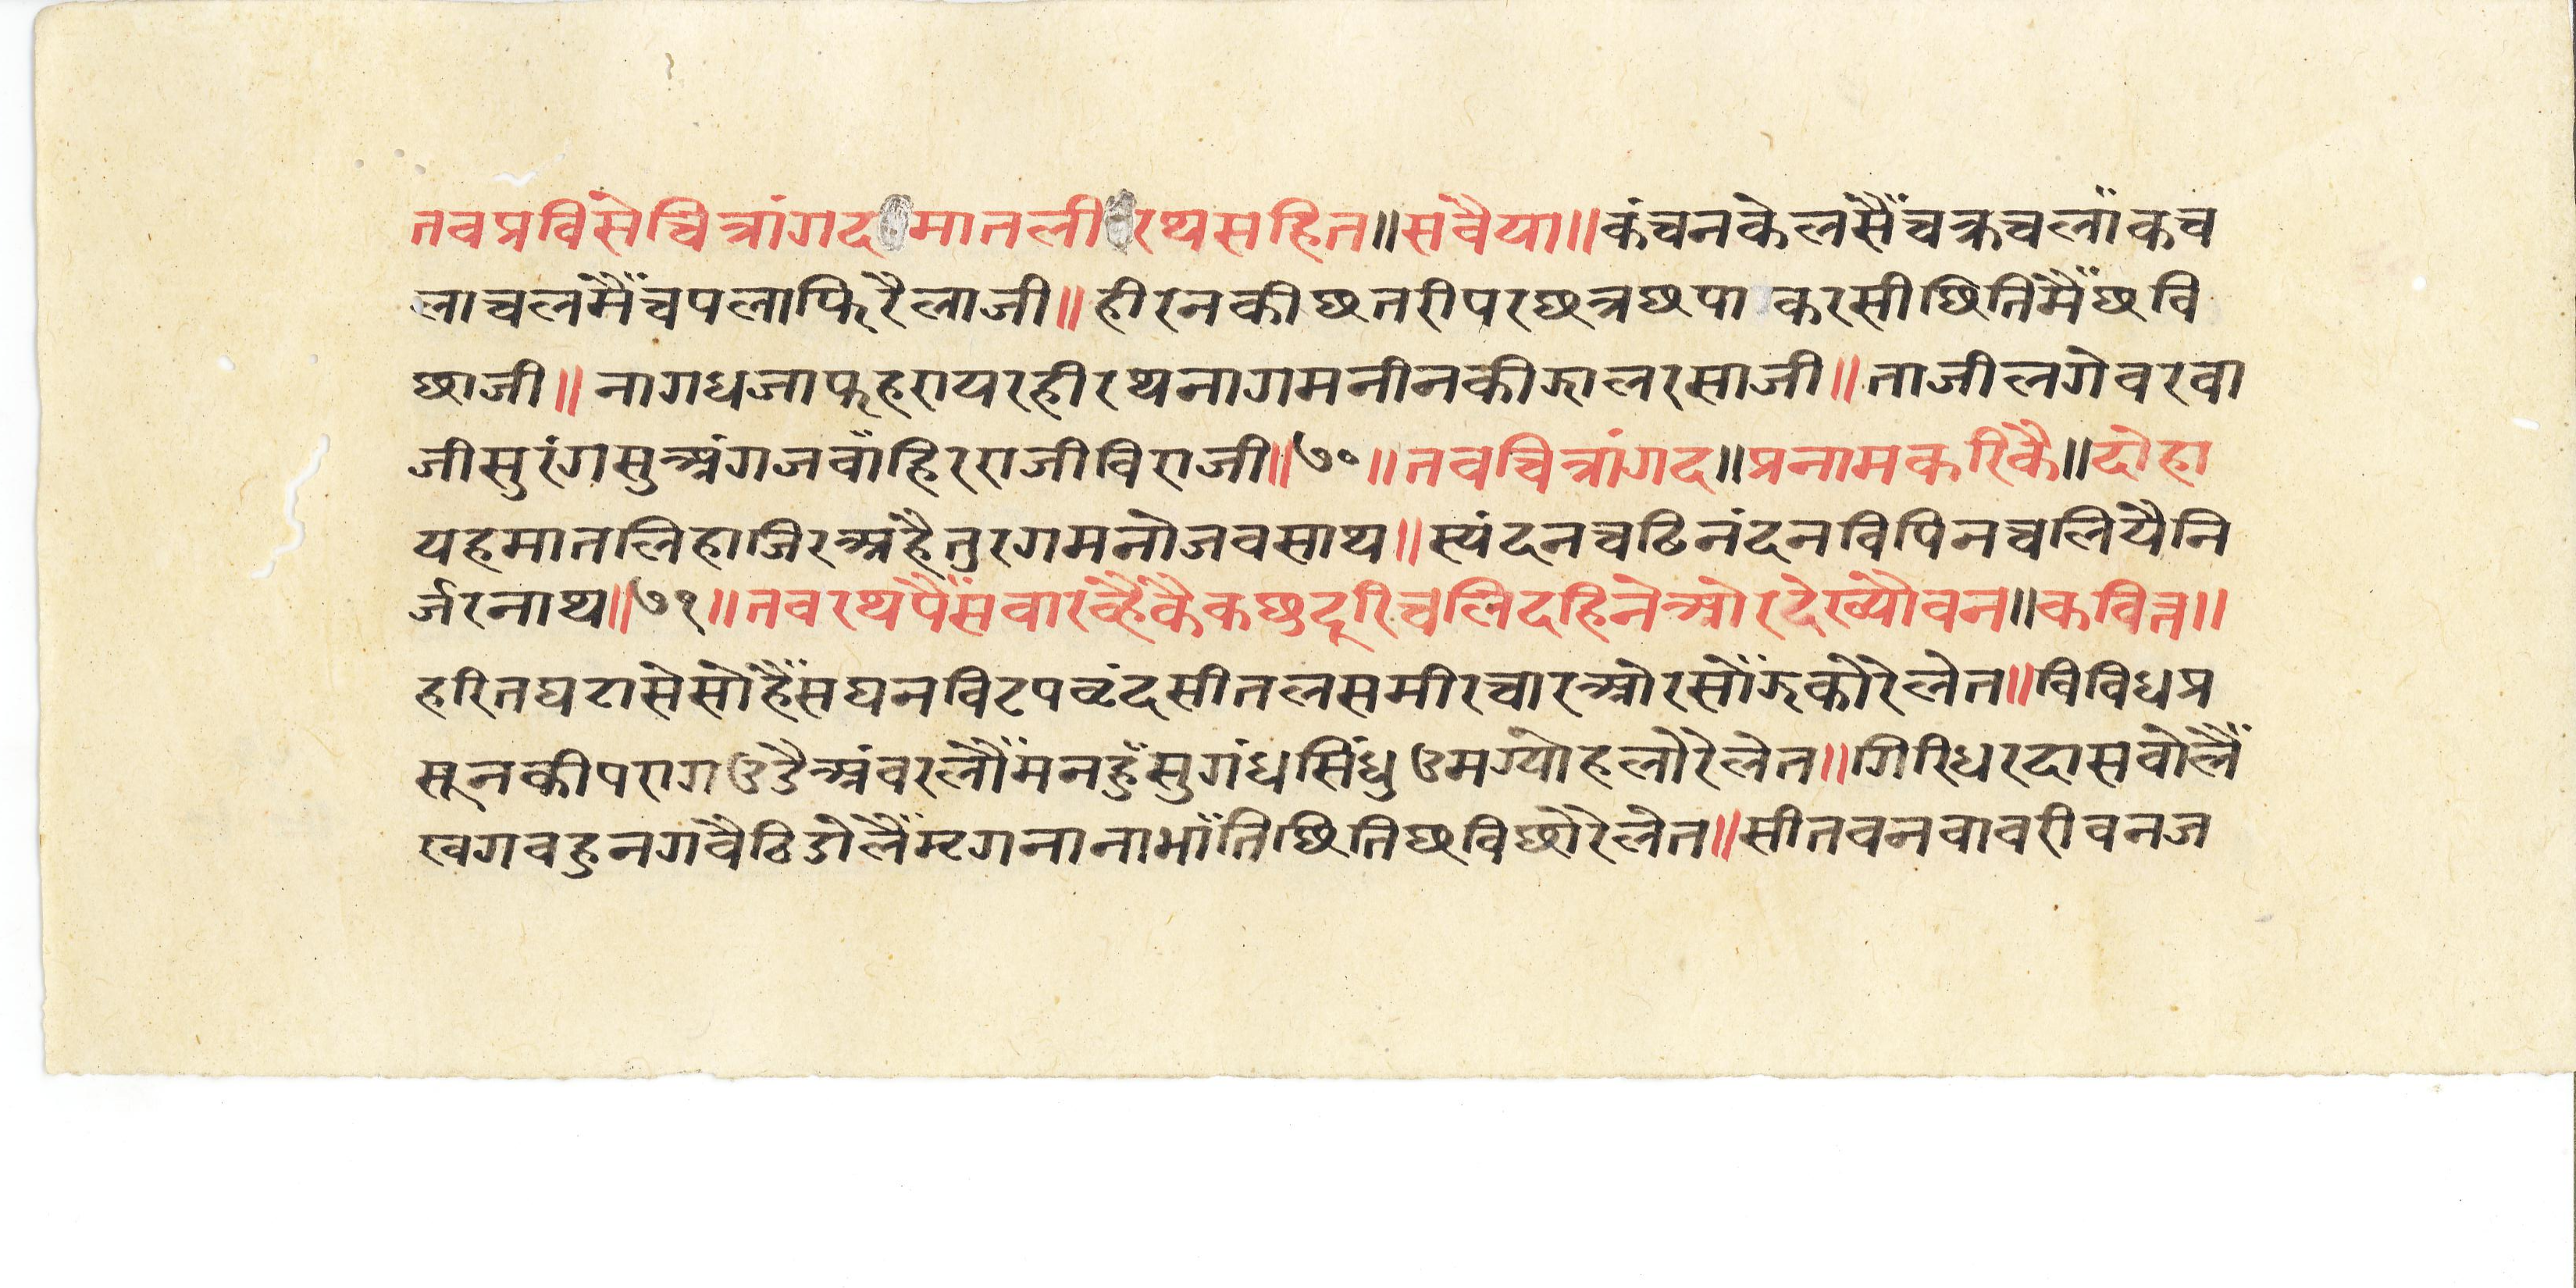 तवप्रविसेचित्रांगदमातलीरथसहित॥सवैया॥कंचनकेलसैंचक्रचलाँकच
लाचलमैंचपलाफिरैलाजी॥हीरनकीछतरीपरछत्रछपाकरसीछितिमैंछवि
छाजी॥नागधजाफहरायरहीरथनागमनीनकीझालरसाजी॥ताजीलगेवरवा
जीसुरंगसुअंगजवाँहिरराजीविराजी॥७०॥तवचित्रांगद॥प्रनामकरिकै॥दोहा
यहमातलिहाजिरअहैतुरगमनोजवसाथ॥स्यंदनचढिनंदनविपिनचलियैनि
र्जरनाथ॥७१॥तवरथपैंसवारव्हैंकैकछुदूरिचलिदहिनेओरदेख्यौवन॥कवित्त॥
हरितघटासेसोहैंसघनविटपवृंदसीतलसमीरचारओरसोंझकोरेलेत॥विविधप्र
सूनकीपरागउडैअंवरलौंमनहुँसुगंधसिंधुउमग्योहलोरेलेत॥गिरिधरदासवोलैं
खगवहुनगवैठिडोलैंमृगनानाभाँतिछितिछविछोरेलेत॥सीतवनवावरीवनज